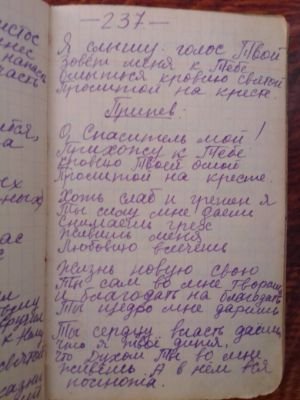 истос
знес
напась
часть
ится,
а
ных
ас
—237—
Я слышу голос Твой
Зовет меня к Тебе
Омыться кровию святой
Пролитой на кресте.
Припев.
О Спаситель мой!
Прихожу к Тебе
Кровию Твоей омой
Пролитой на кресте.
Хоть слаб и грешен я
Ты силу мне даеш
Снимаешь грех
Живишь меня
Любовию влечешь
Жизнь новую свою
Ты сам во мне творишь
И благодать на благодать
Ты щедро мне даришь
Ты сердцу власть даешь
что я твое дитя,
что Духом Ты во мне
живешь А в нем вся
полнота.